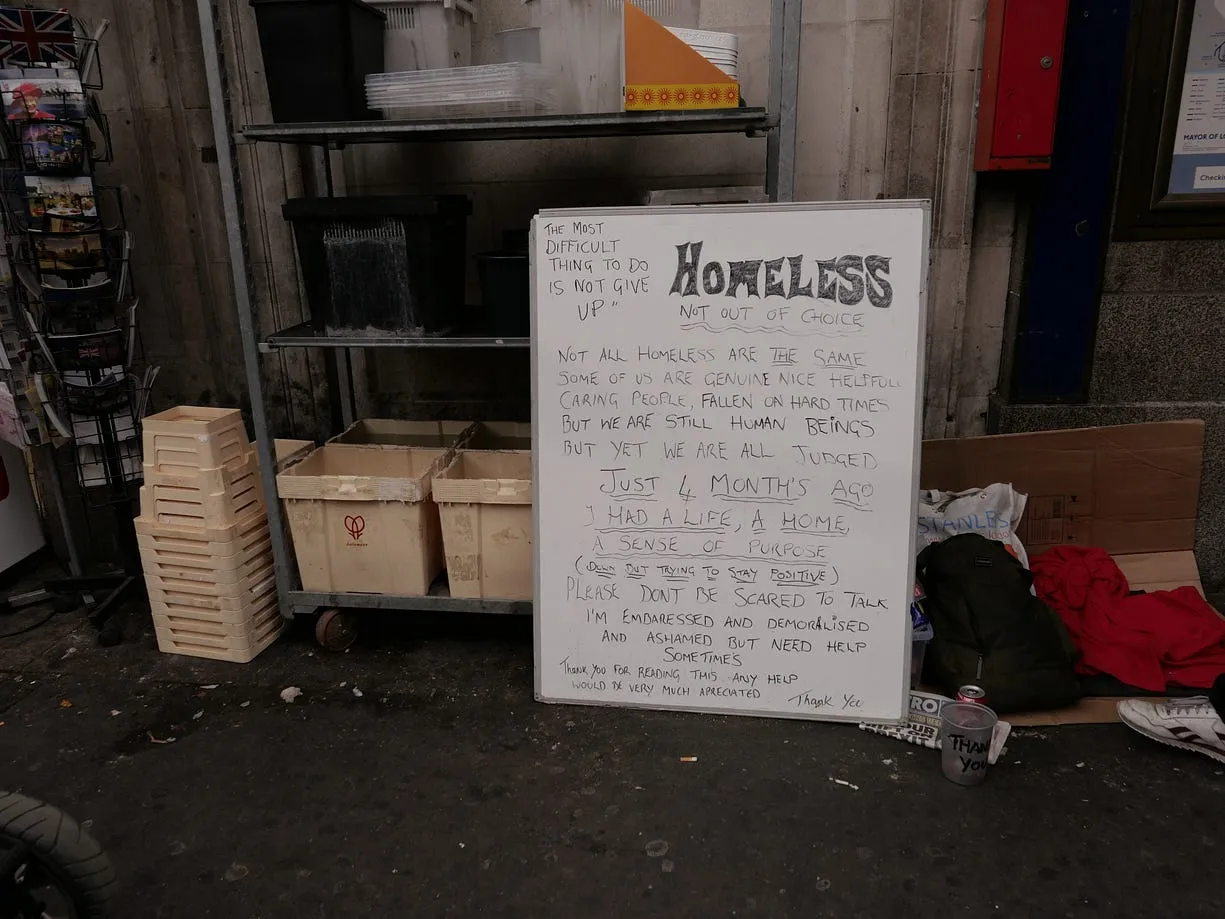 THE MOST
DIFFICULT
THING TO DO
IS NOT GIVE
UP"
HOMELESS
NOT OUT OF CHOICE
NOT ALL HOMELESS ARE THE SAME
SOME OF US ARE GENUINE NICE HELPFUL
CARING PEOPLE, FALLEN ON HARD TIMES
BUT WE ARE STILL HUMAN BEINGS
BUT YET WE ARE ALL JUDGED
JUST 4 MONTH'S AGO
I HAD A LIFE, A HOME,
A SENSE OF PURPOSE
(DOWN BUT TRYING TO STAY POSITIVE)
PLEASE DONT BE SCARED TO TALK
I'M EMBARESSED AND DEMORALISED
AND ASHAMED BUT NEED HELP
SOMETIMES
THANK YOU FOR READING THIS ANY HELP
WOULD BE VERY MUCH APRECIATED
Thank You
STANLEES
THANK
YOU
MAYOR OF LO
Checki